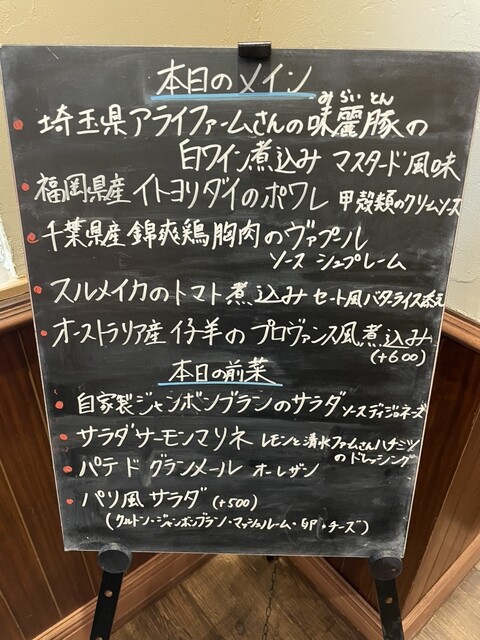 本日のメイン
みらいとん
埼玉県アライファームさんの味麗豚の
白ワイン煮込み マスタード風味
福岡県産イトヨリダイのポワレ 甲殻類のクリームソース
千葉県産錦爽鶏胸肉のヴァプール
ソース シュプレーム
スルメイカのトマト煮込み セート風バターライス添え
オーストラリア産仔羊のプロヴァンス風煮込み
(+600)
本日の前菜
自家製ジャンボンブランのサラダ ソースディジョネーズ
サラダサーモンマリネ レモンと清水ファームさんハチミツ
のドレッシング
パテド グランメール オーレザン
パリ風サラダ (+500)
(クルトン・ジャンボンブラン・マッシュルーム・卵・チーズ)